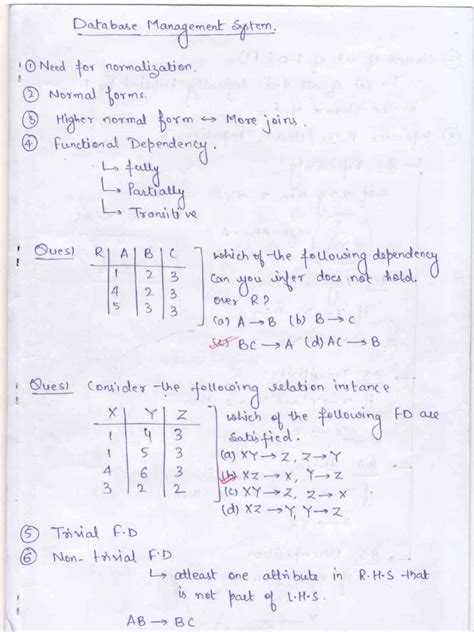 Database Management System.
① Need for normalization.
② Normal forms.
③ Higher normal form ↔ More joins.
④ Functional Dependency.
↳ fully
↳ Partially
↳ Transitive
Ques) R | A | B | C
1 2 3
4 2 3
5 3 3
which of the following dependency
can you infer does not hold
over R?
(a) A → B (b) B → C
(c) BC → A (d) AC → B
Ques) Consider the following relation instance
X Y Z
1 4 3
1 5 3
4 6 3
3 2 2
which of the following FD are
satisfied.
(a) XY → Z, Z → Y
(b) XZ → X, Y → Z
(c) XY → Z, Z → X
(d) XZ → Y, Y → Z
⑤ Trivial F.D
⑥ Non-trivial F.D
↳ atleast one attribute in R.H.S that
is not part of L.H.S.
AB → BC